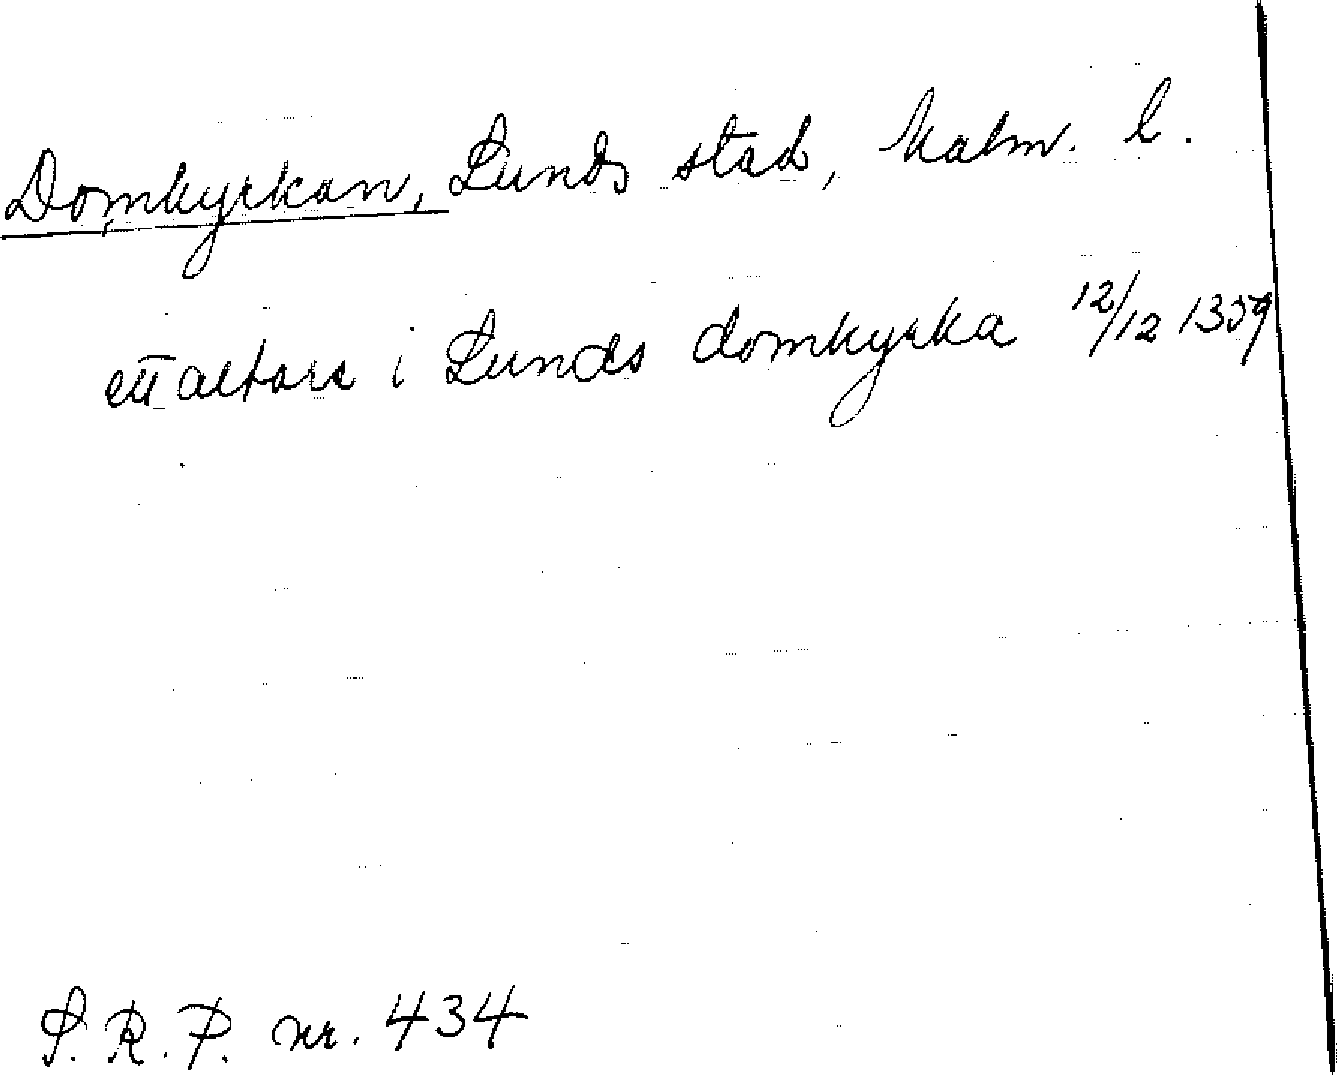 Domkyrkan, Lunds stad, Malm. l.
ett altare i Lunds domkyrka 12/12 1359
S.R.P. nr. 434